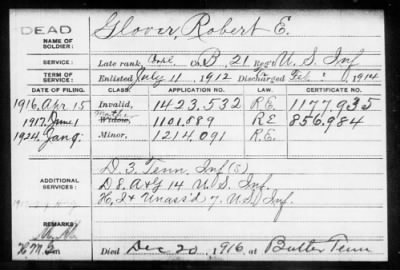 DEAD
Glover, Robert E.
NAME OF SOLDIER:
SERVICE: Late rank, Co. B, 21 Reg't U.S. Inf
TERM OF SERVICE: Enlisted July 11, 1912 Discharged Feb. 1914
DATE OF FILING. CLASS. APPLICATION NO. LAW. CERTIFICATE NO.
1916 Apr 15 Invalid, 1423,532 R.E. 1177,935
1917 June 1 Mother Widow, 1101,889 RE 856,984
1924 Minor, 1214,091 R.E.
ADDITIONAL SERVICES:
D. 3. Tenn. Inf (S)
D & A & G 14 U.S. Inf.
H, I & Unass'd 7. U.S. Inf.
REMARKS:
Died Dec 20, 1916, at Butler Tenn